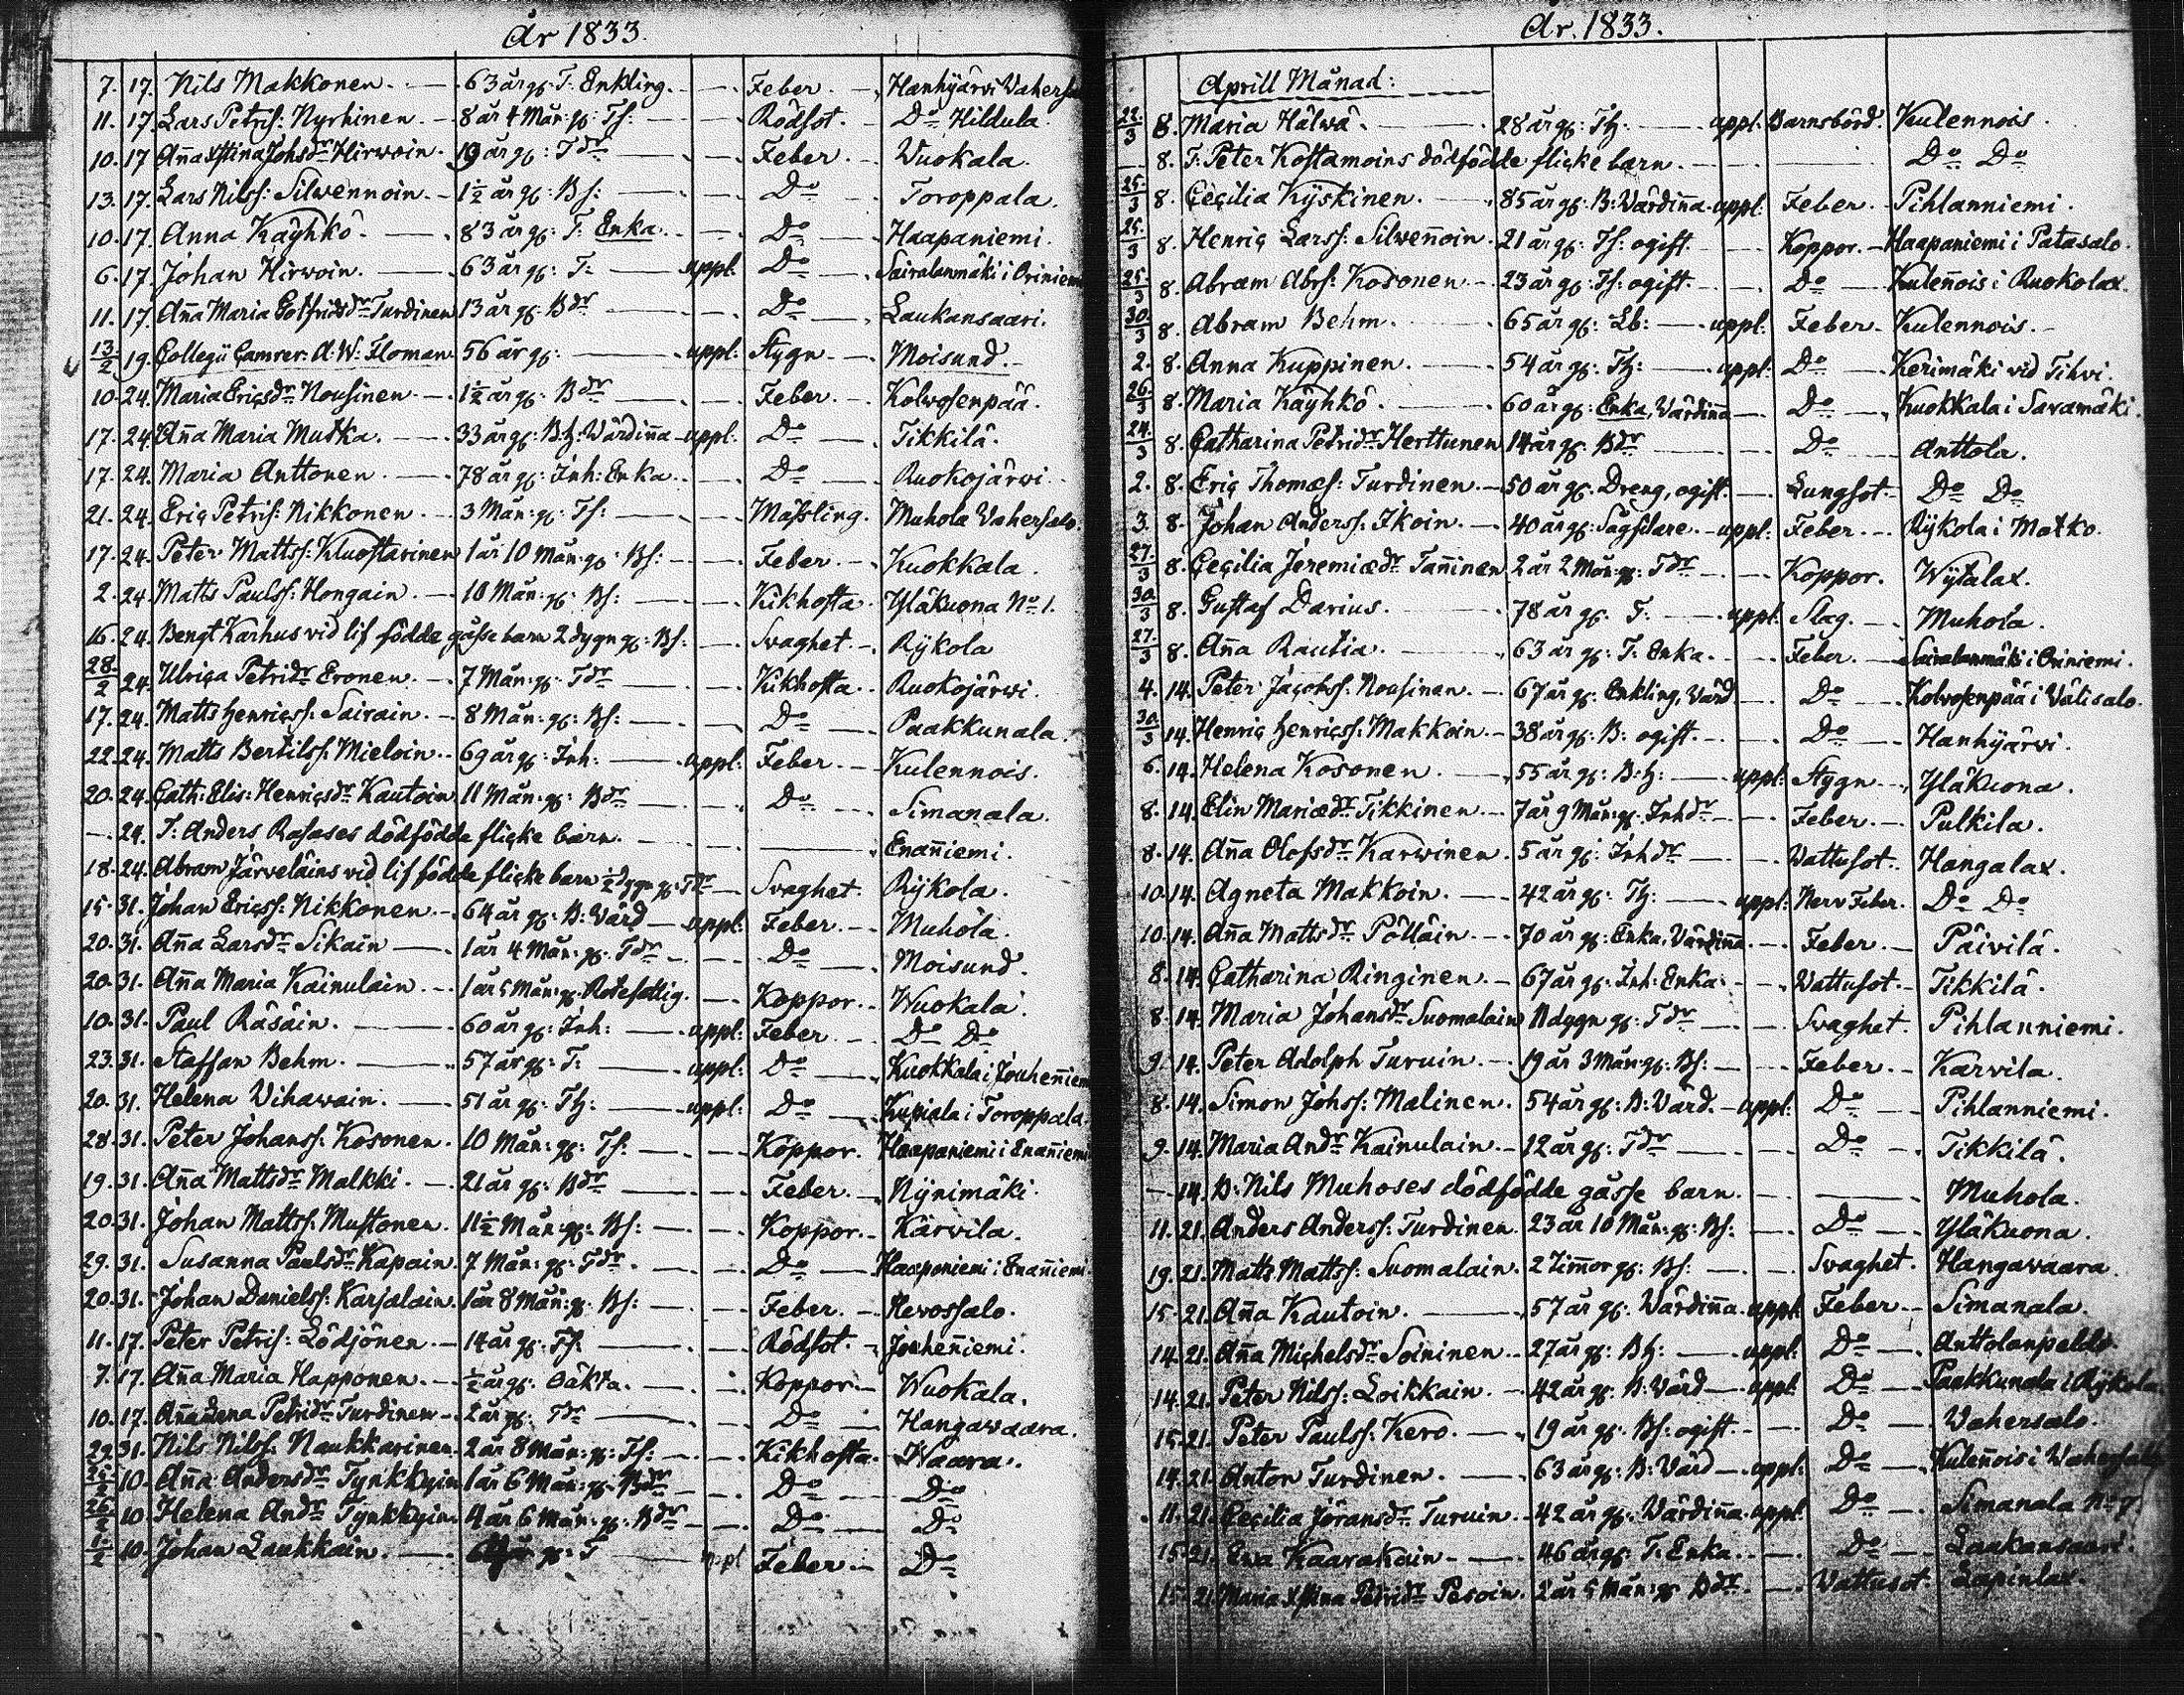 År 1833.
7. 17. Nils Makkonen. 63 år g: T: Enkling. Feber. Hanhijärvi
11. 17. Lars Petris: Nyrhinen. 8 år 4 Mån: g: Ts: Rödsot. Do Hildula.
10. 17. Aña Johsdr Hirwoin. 19 år g: Tdr Feber. Wuokala.
13. 17. Lars Nilss: Silwennoin. 1½ år g: Bs: Do Toroppala.
10. 17. Anna Käyhkö. 83 år g: T: Enka. Do Haapaniemi.
6. 17. Johan Hirwoin. 63 år g: T: uppl: Do Sairalanmäki i
11. 17. Aña Maria Gotfridsdr Turdinen 13 år g: Bdr Do Laukansaari.
13/2 19. Collegii Camrer: A: W: Floman 56 år g: uppl: Stygn Moisund.
10. 24. Maria Ericsdr Nousinen. 1½ år g: Bdr Feber. Kolvosenpää.
17. 24. Aña Maria Mutka. 33 år g: B: H: Värdiña uppl: Do Tikkilä.
17. 24. Maria Anttonen. 78 år g: Inh: Enka. Do Ruokojärvi.
21. 24. Eric Petris: Nikkonen. 3 Mån: g: Ts: Mässling. Muhola Vahersalo.
17. 24. Peter Mattss: 1 år 10 Mån: g: Bs: Feber. Kuokkala.
2. 24. Matts Paulss: Hongain. 10 Mån: g: Bs: Kikhosta. Yläkuona No 1.
16. 24. Bengt Karhus vid lif födde gåsse barn 2 dygn g: Bs: Svaghet. Rykola
28/2 24. Ulrica Petridr Eronen. 7 Mån: g: Tdr Kikhosta. Ruokojärvi.
17. 24. Matts Henricss: Sairain. 8 Mån: g: Bs: Do Paakkunala.
22. 24. Matts Bertilss: Mieloin. 69 år g: Inh: uppl: Feber. Kulennois.
20. 24. Cath: Elis: Henricsdr Kautoin 11 Mån: g: Bdr Do Simanala.
24. T: Anders Rasases dödfödde flicke barn. Enañiemi.
18. 24. Abram Järveläins vid lif födde flicke barn ½ dygn g: Tdr Svaghet. Rykola.
15. 31. Johan Ericss: Nikkonen. 64 år g: B: Värd uppl: Feber. Muhola.
20. 31. Aña Larsdr Sikain 1 år 4 Mån: g: Tdr Do Moisund.
20. 31. Aña Maria Kainulain. 1 år 5 Mån: g: Rotefattig. Koppor. Wuokala.
10. 31. Paul Räsäin. 60 år g: Inh: uppl: Feber. Do Do
23. 31. Staffan Behm. 57 år g: T: uppl: Do Kuokkala i
20. 31. Helena Vihavain. 51 år g: TH: uppl: Do Kupiala i Toroppala.
28. 31. Peter Johanss: Kosonen. 10 Mån: g: Ts: Koppor. Haapaniemi i Enañiemi
19. 31. Aña Mattsdr Malkki. 21 år g: Bdr Feber. Nynimäki.
20. 31. Johan Mattss: Mustonen. 11½ Mån: g: Bs: Koppor. Karvila.
29. 31. Susanna Paulsdr Kapain 7 Mån: g: Tdr Do Haapaniemi i Enañiemi
20. 31. Johan Danielss: Karjalain. 1 år 8 Mån: g: Bs: Feber. Hevossalo.
11. 17. Peter Petris: Lödjönen. 14 år g: Ts: Rödsot. Jouheñiemi.
7. 17. Aña Maria Happonen. ½ år g: Oäkta. Koppor. Wuokala.
10. 17. Aña Lena Petridr Turdinen 2 år g: Tdr Do Hangavaara.
29. 31. Nils Nilss: Naukkarinen. 2 år 8 Mån: g: Ts: Kikhosta. Waara.
10. Aña Andersdr Tynkkyin 1 år 6 Mån: g: Bdr Do Do
26/2 10. Helena Andr Tynkkyin. 4 år 6 Mån: g: Bdr Do Do
1/2 10. Johan Laukkain. g: T uppl Feber Do
År. 1833.
Aprill Månad:
22/3 8. Maria Hälwä. 28 år g: TH: uppl: Barnsbörd. Kulennois.
8. T: Peter Kostamoins dödfödde flicke barn. Do Do
25/3 8. Cecilia Kyskinen. 85 år g: B: Värdiña uppl: Feber. Pihlanniemi.
25/3 8. Henric Larss: Silweñoin. 21 år g: Ts: ogift. Koppor. Haapaniemi i Patasalo.
25/3 8. Abram Abrs: Kosonen. 23 år g: Ts: ogift. Do Kuleñois i Ruokolax.
30/3 8. Abram Behm. 65 år g: Lb: uppl: Feber. Kulennois.
2. 8. Anna Kuppinen. 54 år g: TH: uppl: Do Kerimäki vid Tihvi.
26/3 8. Maria Käyhkö. 60 år g: Enka, Värdiña Do Kuokkala i Savamäki.
24/3 8. Catharina Petridr Herttunen 14 år g: Bdr Do Anttola.
2. 8. Eric Thomæs: Turdinen. 50 år g: Dreng, ogift. Lungsot. Do Do
3. 8. Johan Anderss: Ikoin. 40 år g: Sagfilare. uppl: Feber. Rykola i Matko.
27/3 8. Cecilia Jeremiædr Tañinen 2 år 2 Mån: g: Tdr Koppor. Wytalax.
30/3 8. Gustaf Darius. 78 år g: T: uppl: Slag. Muhola.
27/3 8. Aña Rautia. 63 år g: T: Enka. Feber. Sairalanmäki i Oriniemi.
4. 14. Peter Jacobss: Nousinen. 67 år g: Enkling, Värd Do Kolvosenpää i Välisalo.
30/3 14. Henric Henricss: Makkoin. 38 år g: B: ogift. Do Hanhijärvi.
6. 14. Helena Kosonen. 55 år g: B: H: uppl: Stygn Yläkuona.
8. 14. Elin Mariædr Tikkinen. 7 år 9 Mån: g: Inhdr Feber. Pulkila.
8. 14. Aña Olofsdr Karwinen. 5 år g: Inhdr Vattusot. Hangalax.
10. 14. Agneta Makkoin. 42 år g: TH: uppl: Nerv Feber. Do Do
10. 14. Aña Mattsdr Pölläin. 70 år g: Enka, Värdiña. Feber. Päivilä.
8. 14. Catharina Ringinen. 67 år g: Inh: Enka. Vattusot. Tikkilä.
8. 14. Maria Johansdr Suomalain 11 dygn g: Tdr Svaghet. Pihlanniemi.
9. 14. Peter Adolph Turuin. 19 år 3 Mån: g: Bs: Feber. Karvila.
8. 14. Simon Johss: Malinen. 54 år g: B: Värd. uppl: Do Pihlanniemi.
9. 14. Maria Andr Kainulain. 12 år g: Tdr Do Tikkilä.
14. B: Nils Muhoses dödfödde gåsse barn. Muhola.
11. 21. Anders Anderss: Turdinen. 23 år 10 Mån: g: Bs: Do Yläkuona.
19. 21. Matts Mattss: Suomalain. 2 Timor g: Bs: Svaghet. Hangavaara.
15. 21. Aña Kautoin. 57 år g: Värdiña. uppl: Feber. Simanala.
14. 21. Aña Michelsdr Soininen. 27 år g: BH: uppl: Do Anttolanpeldo.
14. 21. Peter Nilss: Loikkain. 42 år g: B: Värd uppl: Do Paakkunala i Rykola
15. 21. Peter Paulss: Kero. 19 år g: Bs: ogift. Do Vahersalo.
14. 21. Anton Turdinen. 63 år g: B: Värd uppl: Do Kuleñois i
11. 21. Cecilia Jöransdr Turuin. 42 år g: Värdiña. uppl: Do Simanala No 7
15. 21. Ewa Kaarakain. 46 år g: T: Enka. Do Laukansaari.
15. 21. Maria Petridr Pesoin. 2 år 5 Mån: g: Bdr Vattusot. Lapinlax.